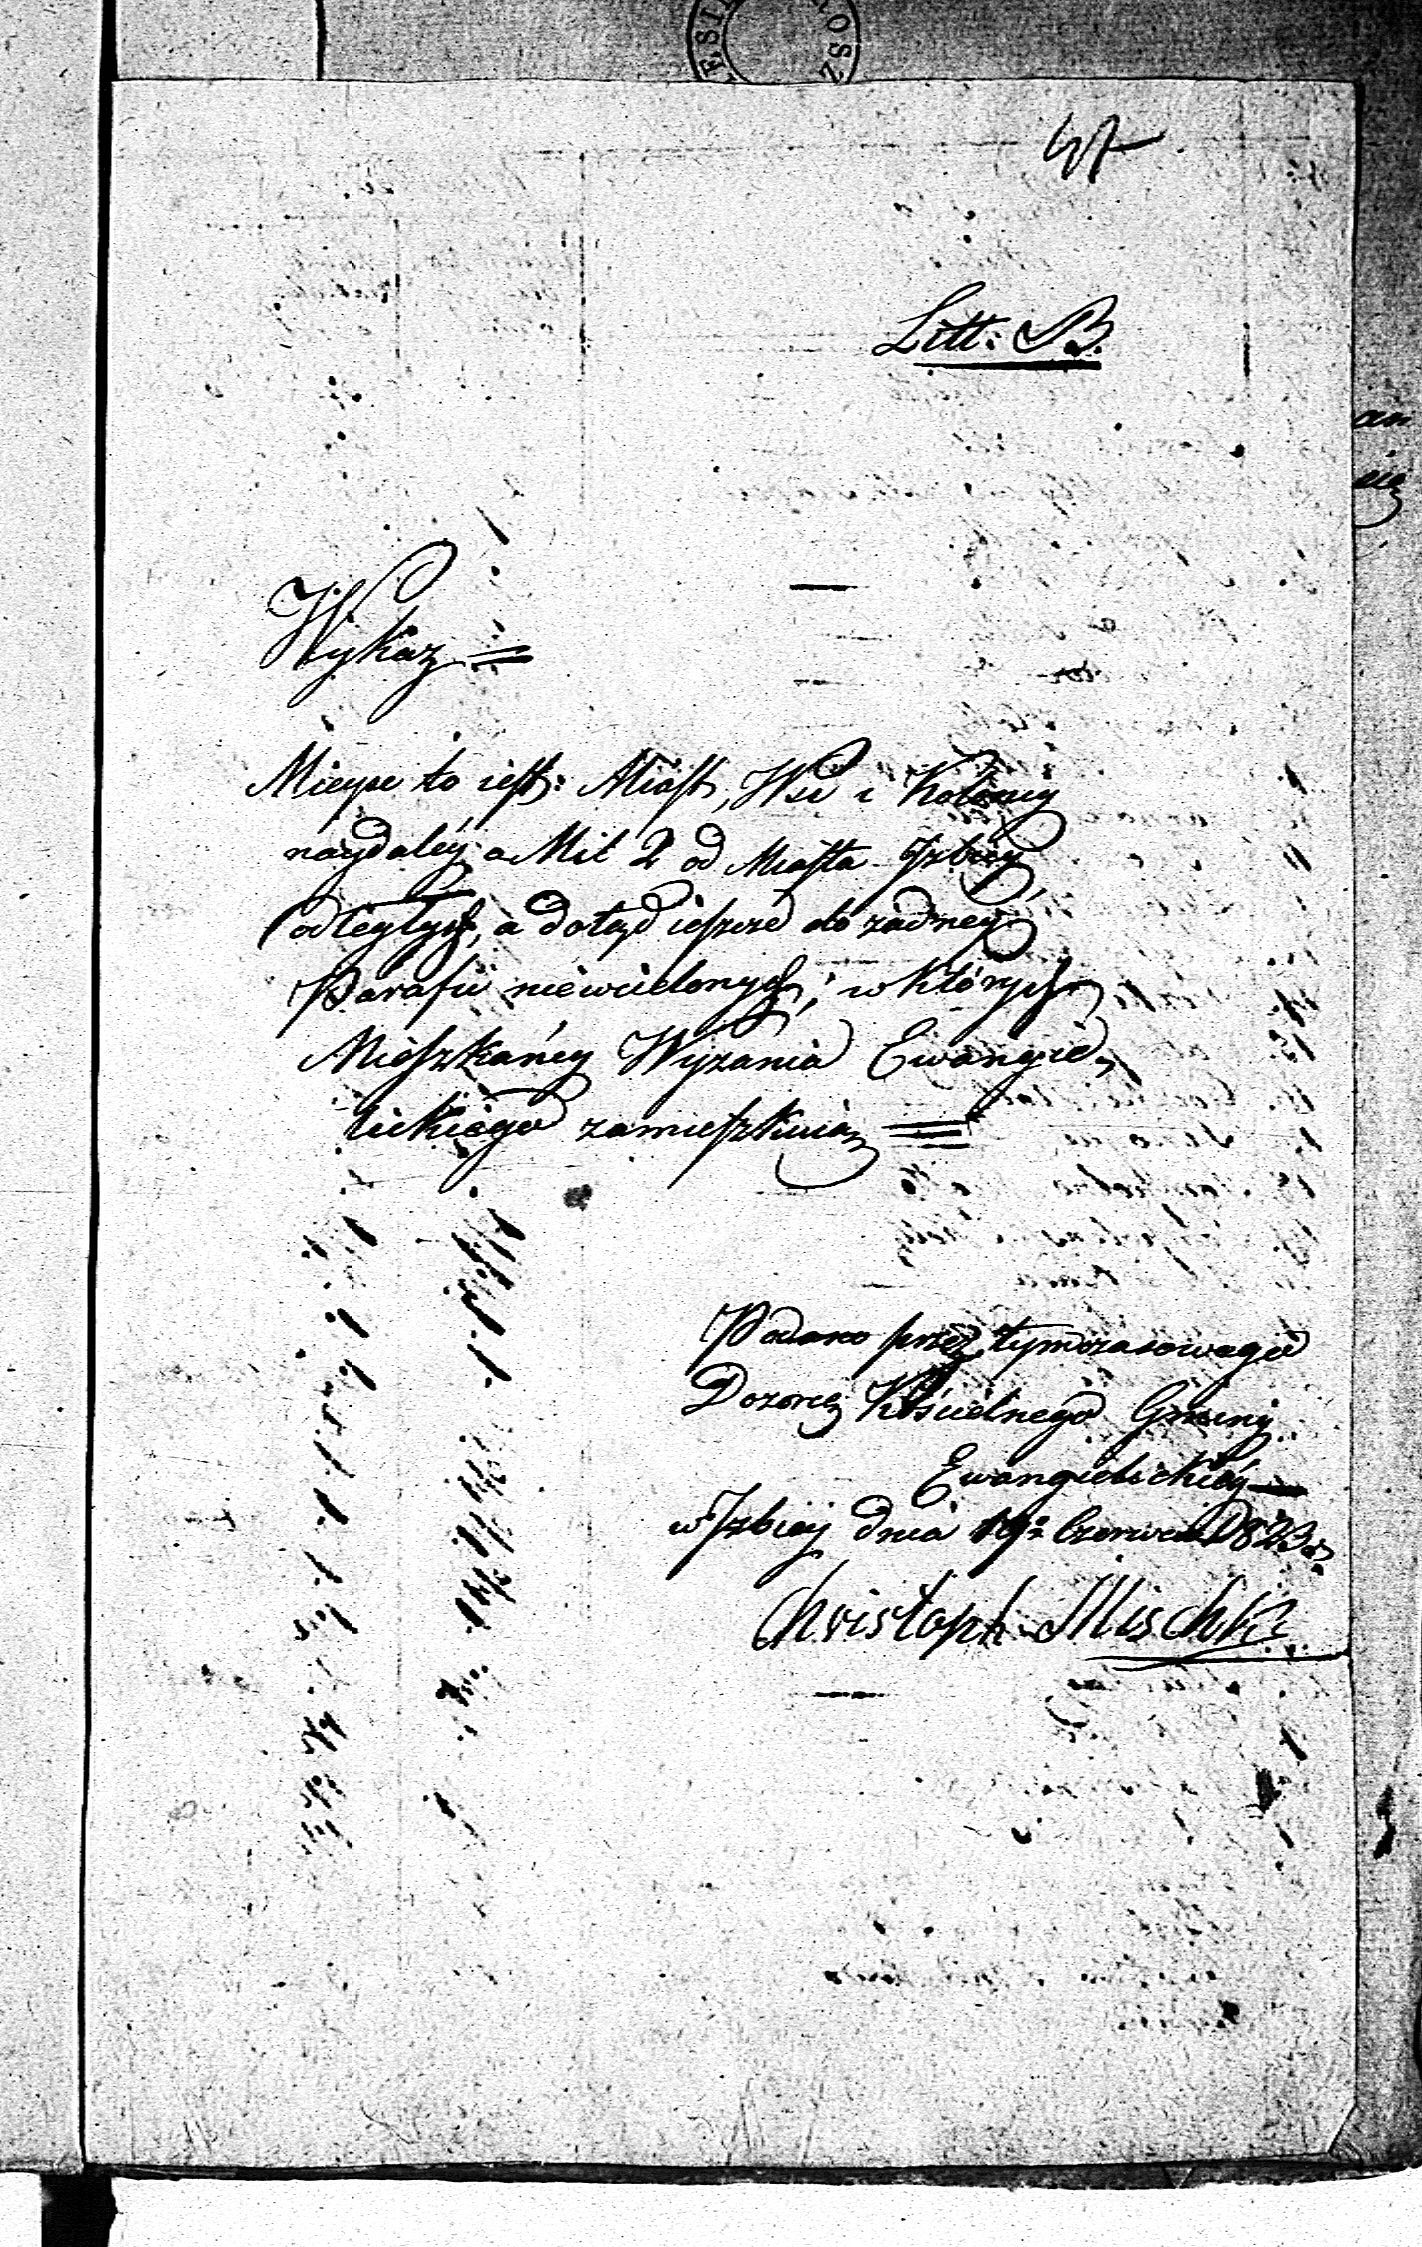 47
Litt: B.
Wykaz
Mieysc to iest: Miast, Wsi i Kolonij
naydaléy o Mil 2 od Miasta Izbicy
odległych, a dotąd ieszcze do żadney
Parafii niewcielonych, w których
Mieszkańcy Wyznania Ewangie-
lickiego zamieszkuią
Podano przez tymczasowego
Dozorcę Kościelnego Gminy
Ewangielickiéy
w Izbicy dnia Czerwca 1823 r.
Christoph Mischke